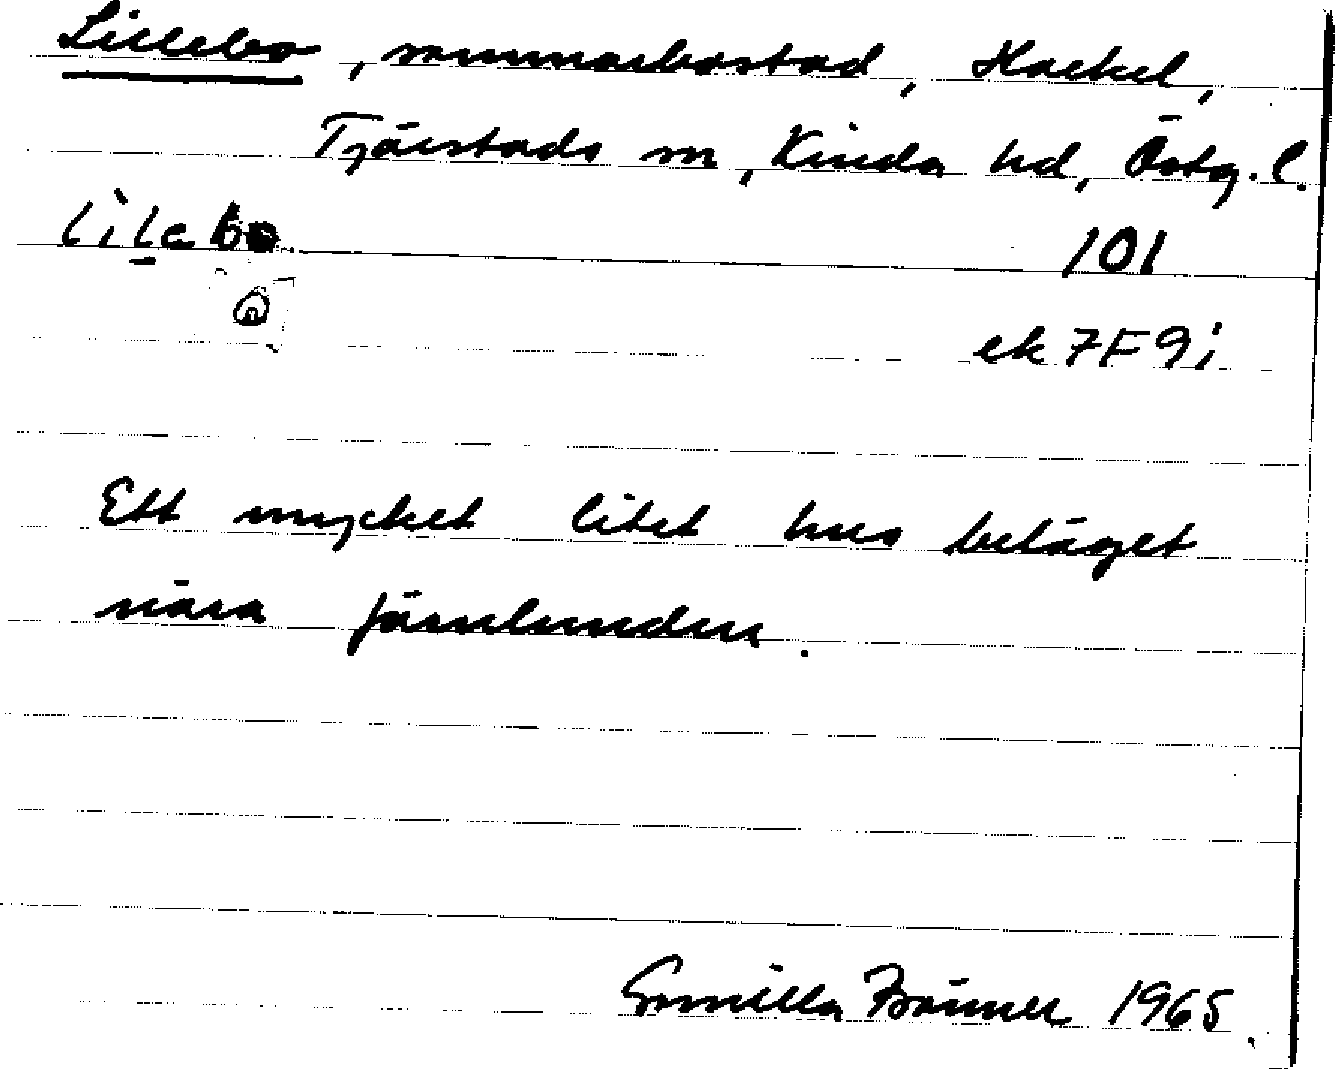 Lillebo, sommarbostad, Hackel,
Tjärstads sn, Kinda hd, Östg. l.
lìlebo 101
ek 7F9i
Ett mycket litet hus beläget
nära Järnlunden.
Gunilla 1965